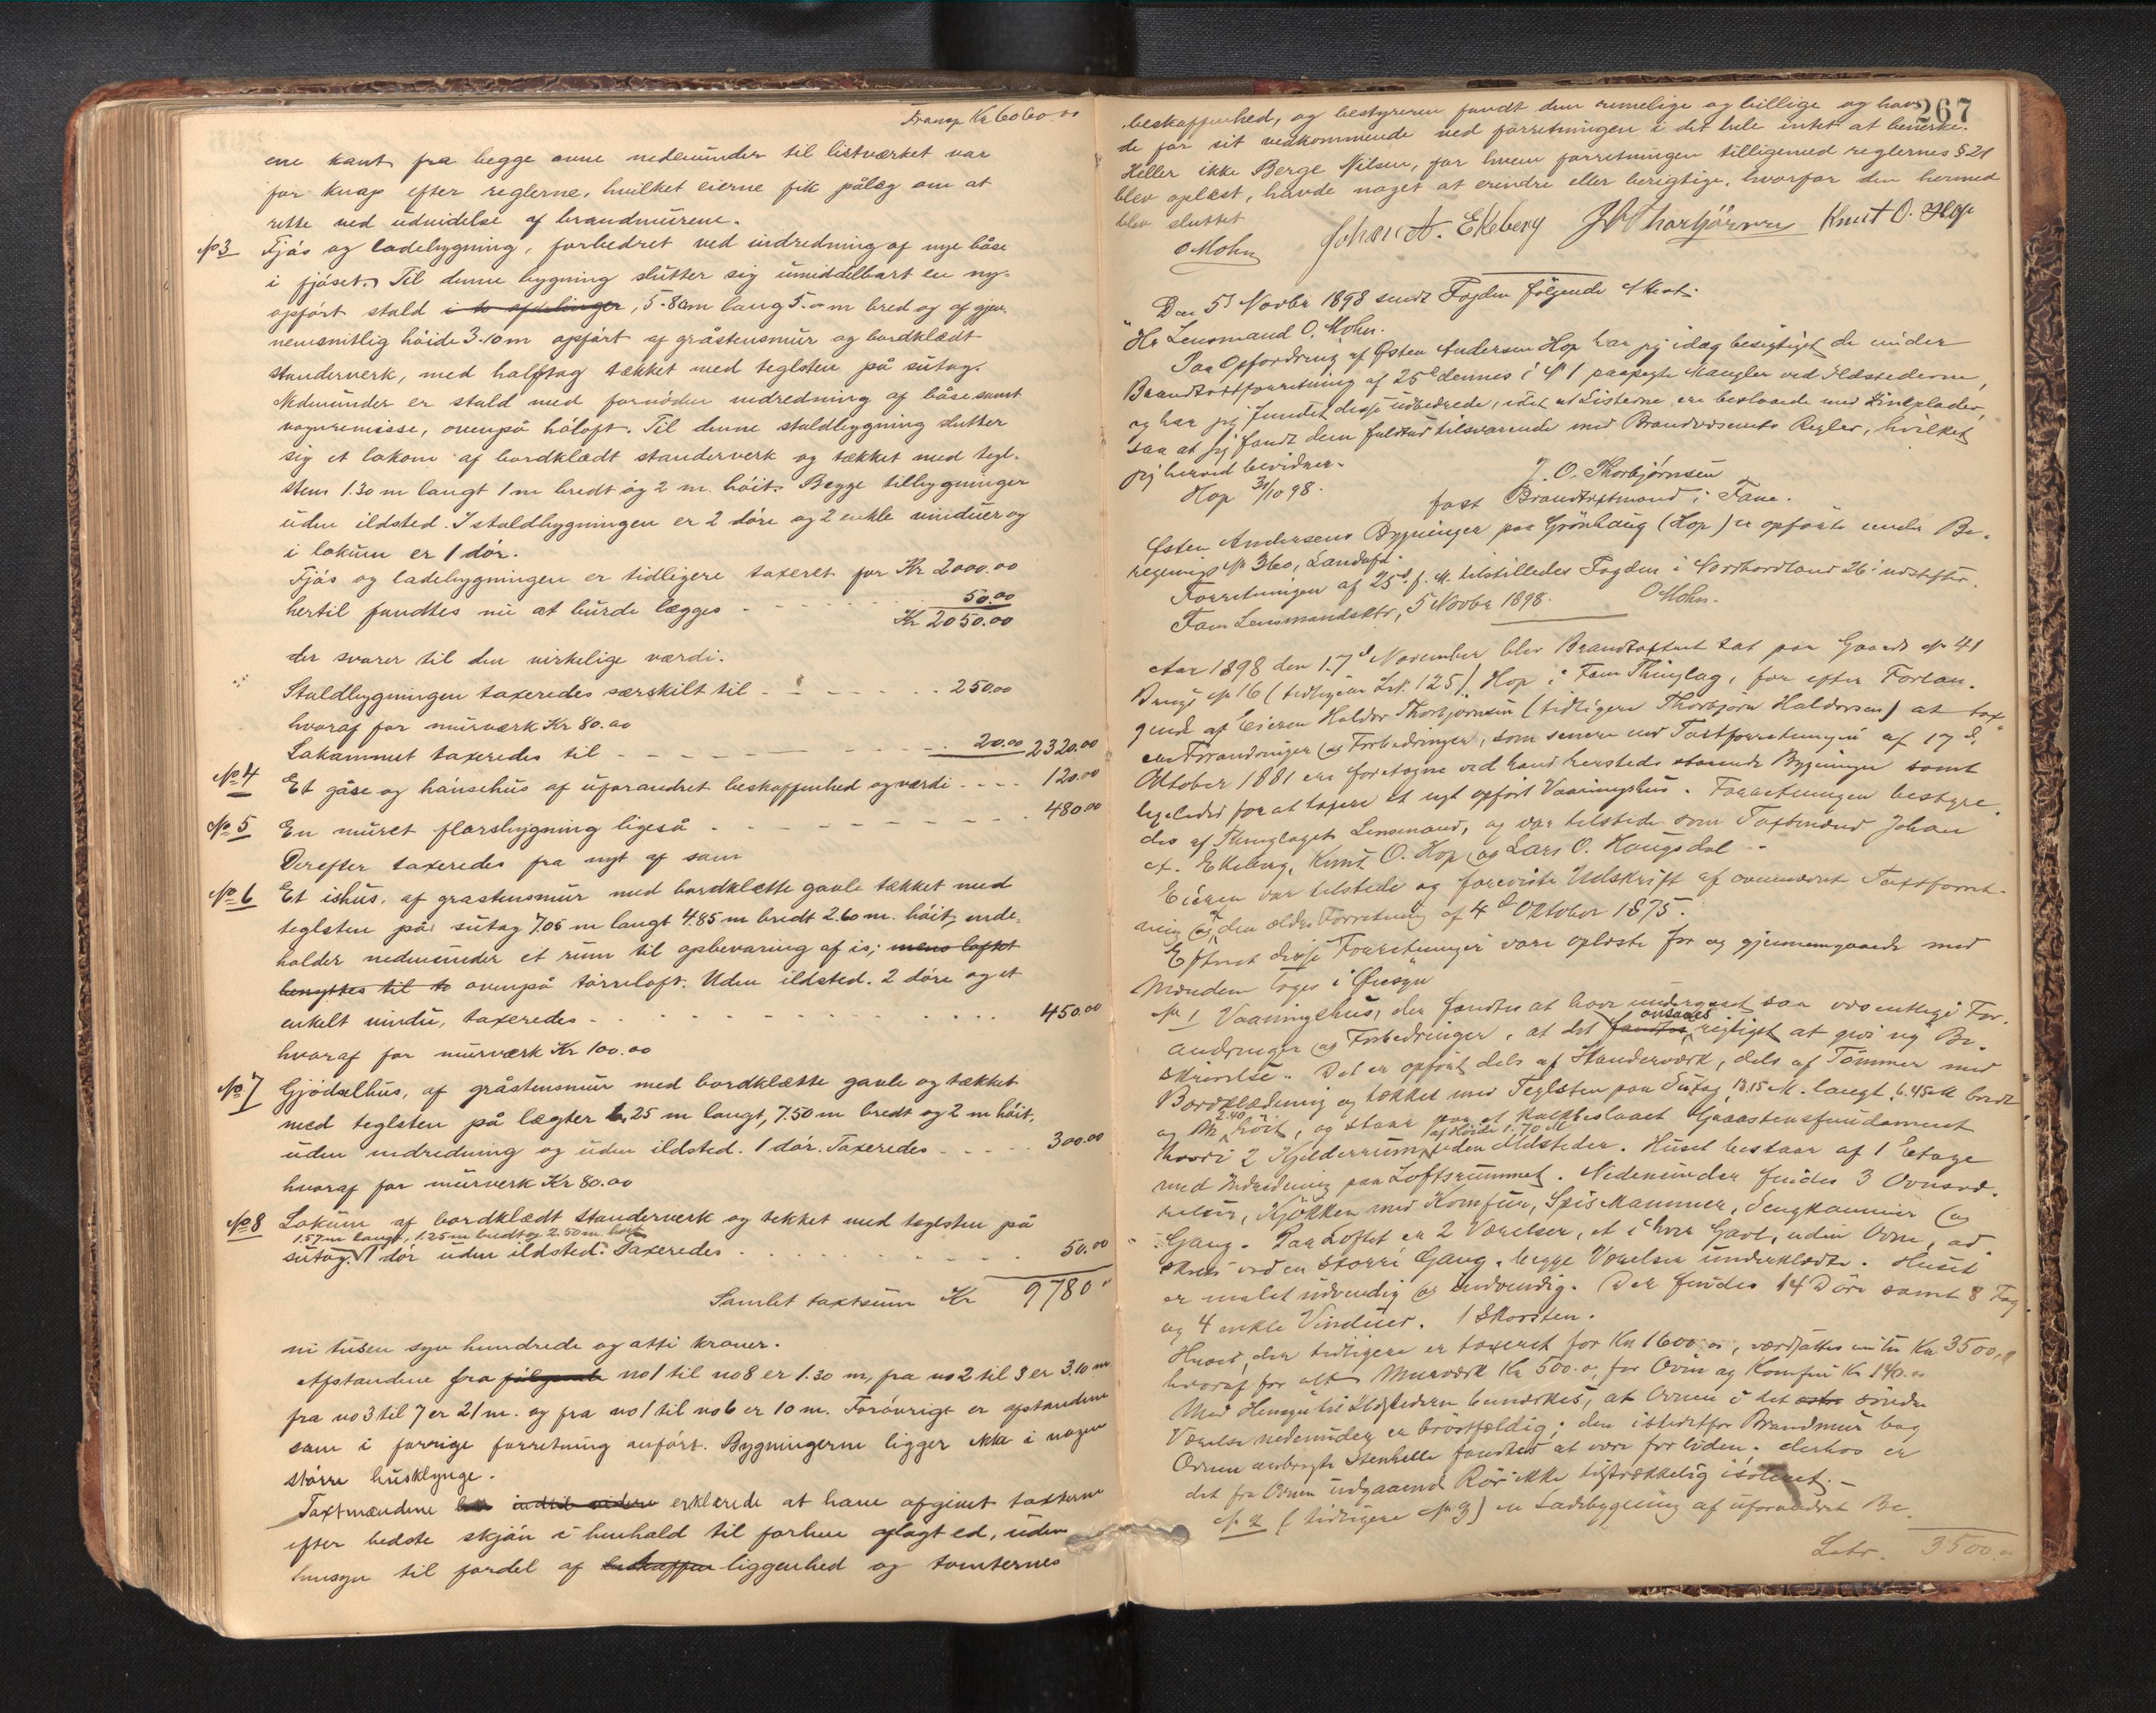 Transp Kr 6060.00
ene kant fra begge ovne nedenunder til listværket var
for knap efter reglerne, hvilket eierne fik pålæg om at
rette ved udvidelse af brandmurene.
No 3 Fjös og ladebygning, forbedret ved indredning af nye båse
i fjöset. Til denne bygning slutter sig umiddelbart en ny-
opfört stald i to afdelinger, 5.80m lang 5.00m bred og af gjen-
nemsnitlig höide 3.10m opfört af gråstensmur og bordklædt
standerverk, med halvtag tækket med teglsten på sutag.
Nedenunder er stald med fornöden indredning af båse samt
vognremisse, ovenpå höloft. Til denne staldbygning slutter
sig et lokum af bordklædt standerverk og tækket med tegl-
sten 1.30 m langt 1 m bredt og 2 m. höit. Begge tilbygninger
uden ildsted. I staldbygningen er 2 döre og 2 enkle vinduer og
i lokum er 1 dör.
Fjös og ladebygningen er tidligere taxeret for Kr 2000.00
hertil fandtes nu at burde lægges 50.00
Kr 2050.00
der svarer til den virkelige værdi.
Staldbygningen taxeredes særskilt til 250.00
hvoraf for murværk Kr 80.00
Lokummet taxeredes til 20.00 2320.00
No 4 Et gåse og hönsehus af uforandret beskaffenhed og værdi 120.00
No 5 En muret florsbygning ligeså 480.00
Derefter taxeredes fra nyt af som
No 6 Et ishus, af grastensmur med bordklætte gavle tækket med
teglsten på sutag 7.05 m langt 4.85 m bredt 2.60 m. höit, inde-
holder nedenunder et rum til opbevaring af is; mens loftet
benyttes til to ovenpå törreloft. Uden ildsted. 2 döre og et
enkelt vindu, taxeredes 450.00
hvoraf for murværk Kr 100.00
No 7 Gjödselhus, af gråstensmur med bordklætte gavle og tækket
med teglsten på lægter 6.25 m langt, 7.50 m bredt og 2 m höit,
uden indredning og uden ildsted. 1 dör. Taxeredes 300.00
hvoraf for murverk Kr 80.00
No 8 Lokum af bordklædt standerverk og tekket med teglsten på
1.57 m langt, 1.25 m bredt og 2.50 m. höit
sutag. 1 dör uden ildsted. Taxeredes 50.00
Samlet taxtsum Kr 9780"
ni tusen syv hundrede og atti kroner.
Afstandene fra følgende no 1 til no 8 er 1.30 m, fra no 2 til 8 er 3.10 m
fra no 3 til 7 er 21 m. og fra no 1 til no 6 er 10 m. Forövrigt er afstandene
som i forrige forretning anfört. Bygningerne ligger ikke i nogen
större husklynge.
Taxtmændene indtil videre erklærede at have afgivet taxterne
efter bedste skjön i henhold til forhen aflagt ed, uden
hensyn til fordel af beskaffen liggenhed og tomternes
267
beskaffenhed, og bestyreren fandt dem rimelige og billige og hav-
de for sit vedkommende ved forretningen i det hele intet at bemerke.
Heller ikke Berge Nilsen, for hvem forretningen tilligemed reglernes § 21
blev oplæst, havde noget at erindre eller berigtige, hvorfor den hermed
blev sluttet
O Mohn Johan A. Ekeberg J O Thorbjörnsen Knut O. Hop
Den 5' Novbr 1898 sendt Fogden følgende Attest:
"Hr Lensmand O. Mohn.
Paa Opfordring af Østen Andersen Hop har jeg idag besigtiget de under
Brandtaxtforretning af 25d dennes i № 1 paapegte Mangler ved Ildstederne,
og har jeg fundet disse udbedrede, idet at Listerne ere beslaaede med Zinkplader,
saa at jeg fandt dem fuldtud tilsvarende med Brandvæsenets Regler, hvilket
jeg herved bevidner.
Hop 31/10 98. J. O. Thorbjørnsen
fast Brandtaxtmand i Fane.
Østen Andersens Bygninger paa Grönhaug (Hop) er opförte under Be-
regnings № 360, Landafd.
Forretningen af 25d. f. M. tilstilledes Fogden i Nordhordland 26' udskiftr.
Fane Lensmandsktr, 5 Novbr 1898. O Mohn.
Aar 1898 den 17d November blev Brandtaxtret sat paa Gaards № 41
Brugs № 16 (tidligere Lsk. 125) Hop i Fane Thinglag, for efter Forlan-
gende af Eieren Haldor Thorbjørnsen (tidligere Thorbjørn Haldorsen) at tax-
ere Forandringer og Forbedringer, som senere end Taxtforretningen af 17d.
Oktober 1881 ere foretagne ved hans hersteds staaende Bygninger samt
ligeledes for at taxere et nyt opfört Vaaningshus. Forretningen bestyre-
des af Thinglagets Lensmand, og var tilstede som Taxtmænd Johan
A. Ekeberg, Knut O. Hop og Lars O. Haugsdal.
Eieren var tilstede og foreviste Udskrift af ovennævnte Taxtforret-
ning og den ældre Forretning af 4d Oktober 1875.
Efterat disse Forretninger vare oplæste for og gjennemgaaede med
Mændene toges i Øiesyn
№ 1 Vaaningshus, der fandtes at have undergaaet saa væsentlige For-
andringer og Forbedringer, at det fandtes ansaaes rigtigst at give ny Be-
skrivelse. Det er opført dels af Standerværk, dels af Tömmer med
Bordklædning og tækket med Teglsten paa Sutag, 13.15 M. langt, 6.45 M bredt
og M. 2.40 höit, og staar paa et Kalkbeslaaet Graastensfundament
af Höide 1.70 M
hvori 2 Kjelderrum, uden Ildsteder. Huset bestaar af 1 Etage
med Indredning paa Loftsrummet. Nedenunder findes 3 Ovnsvæ-
relser, Kjøkken med Komfur, Spiskammer, Sengkammer og
Gang. Paa Loftet er 2 Værelser, et i hver Gavl, uden Ovne, ad-
skilt ved en större Gang, begge Værelser underklædte. Huset
er malet udvendig og indvendig. Der findes 14 Döre samt 8 Fag
og 4 enkle Vinduer. 1 Skorsten.
Huset, der tidligere er taxeret for Kr 1600.00, værdsattes nu til Kr. 3500.00
hvoraf for alt Murværk Kr 500.00, for Ovne og Komfur Kr 140.00
Med Hensyn til Ildstederne bemærkes, at Ovnen i det søndre
Værelse nedenunder er bröstfældig; den istedetfor Brandmur bag
Ovnen anbragte Stenhelle fandtes at være for liden. derhos er
det fra Ovnen udgaaende Rör ikke tilstrækkelig isoleret.
№ 2 (tidligere № 3) en Ladebygning af uforandret Be-
Latr. 3500.00